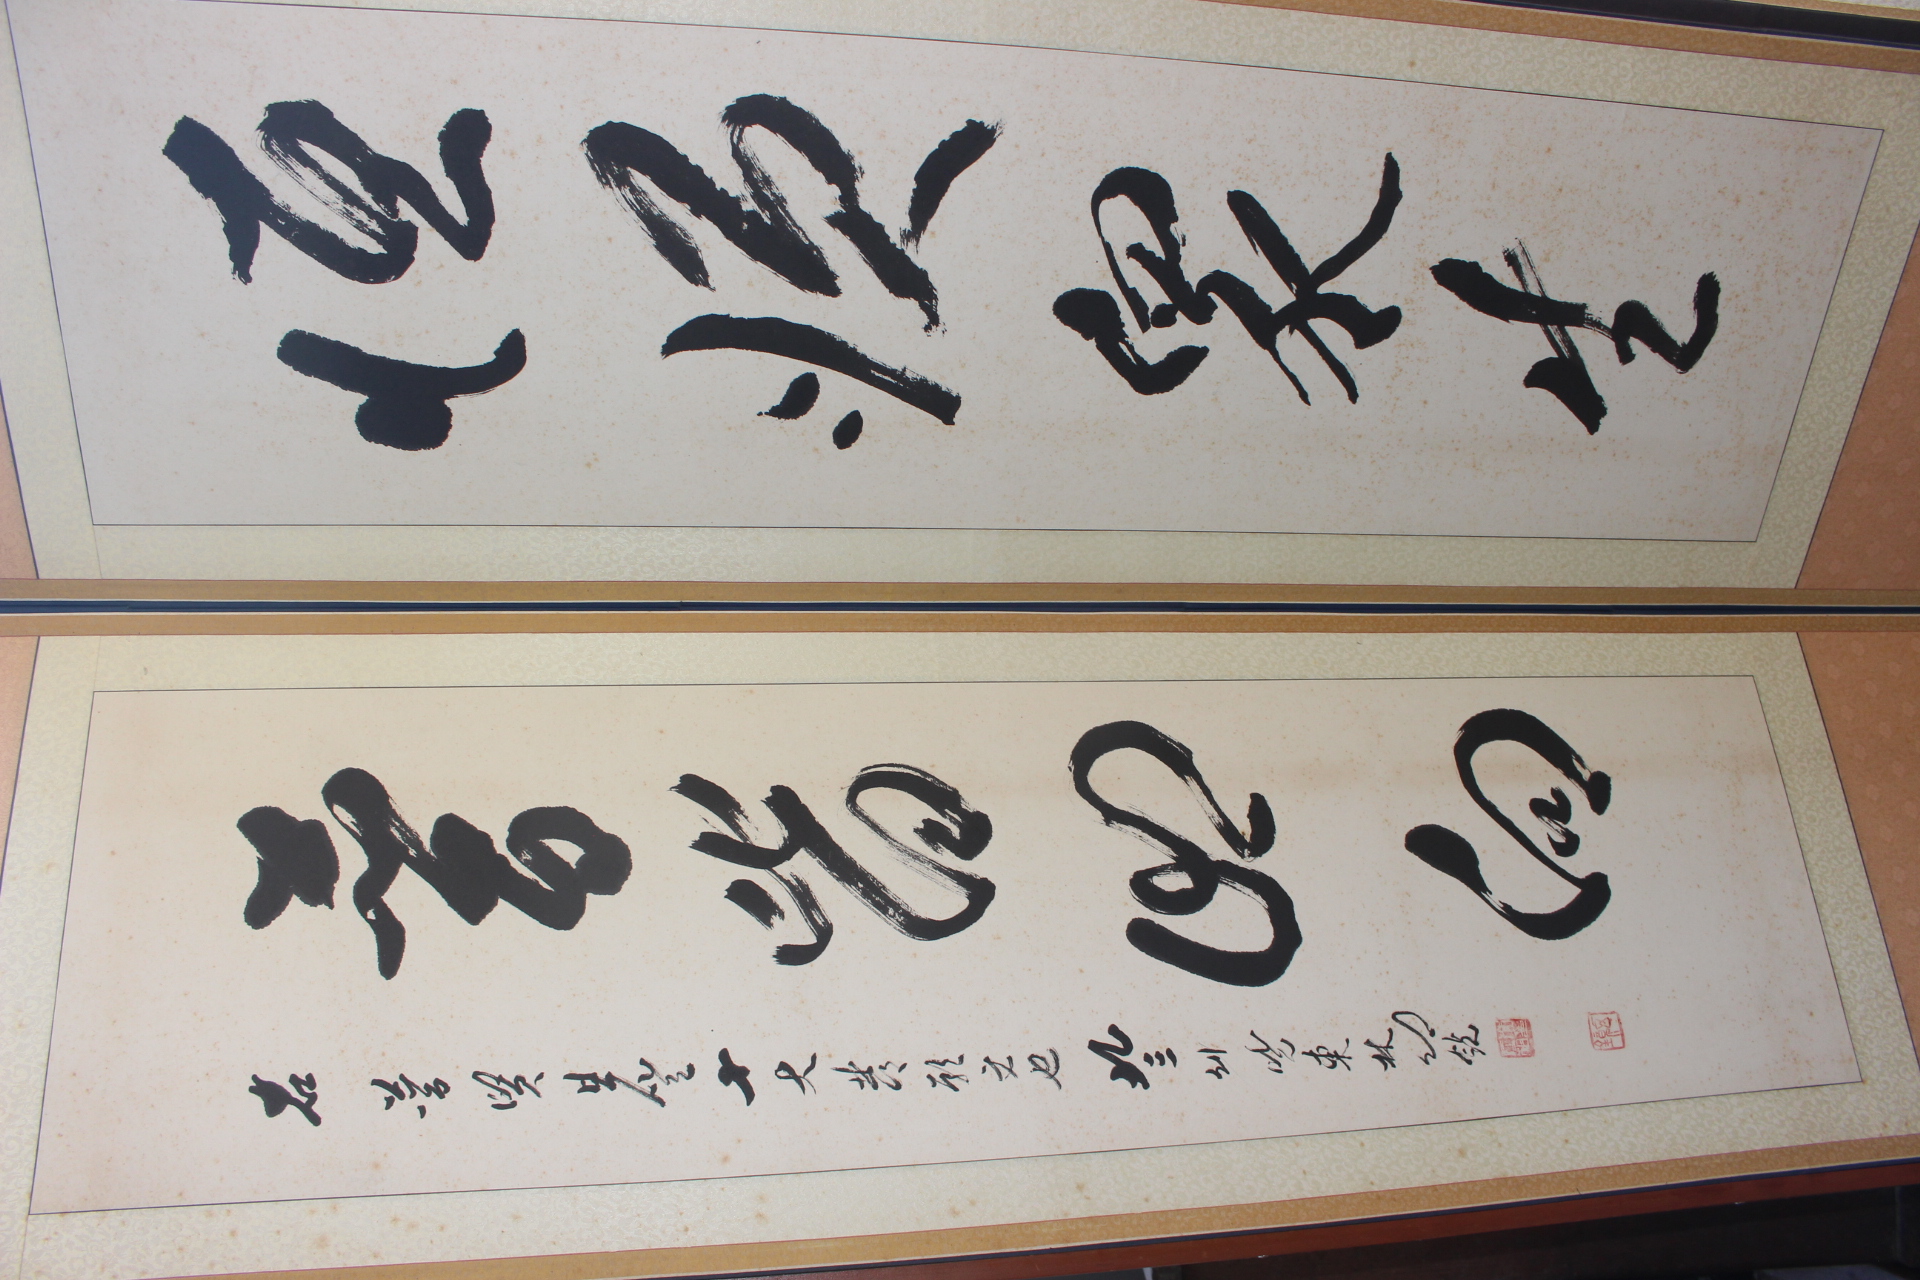 恒順眾生
普皆回向
右普賢菩薩十大發願文也
東林